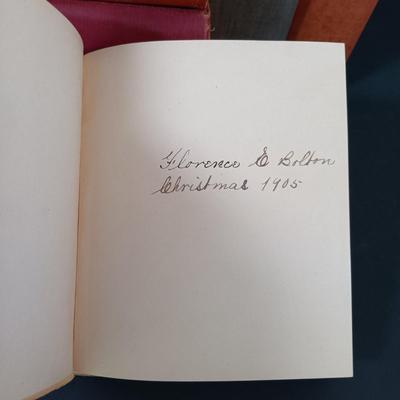 Florence E Bolton
Christmas 1905